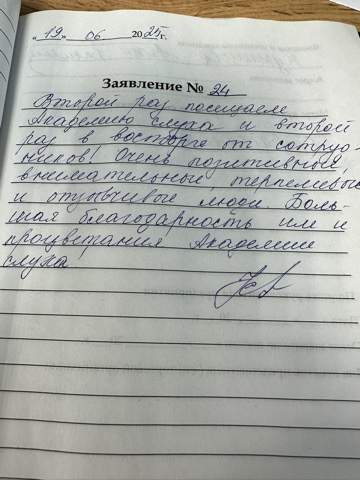 „19" 06 2025г.
Заявление № 24
Второй раз посещаем
Академию слуха и второй
раз в восторге от сотруд-
ников! Очень позитивные,
внимательные, терпеливые
и отзывчивые люди. Боль-
шая благодарность им и
процветания Академии
слуха!